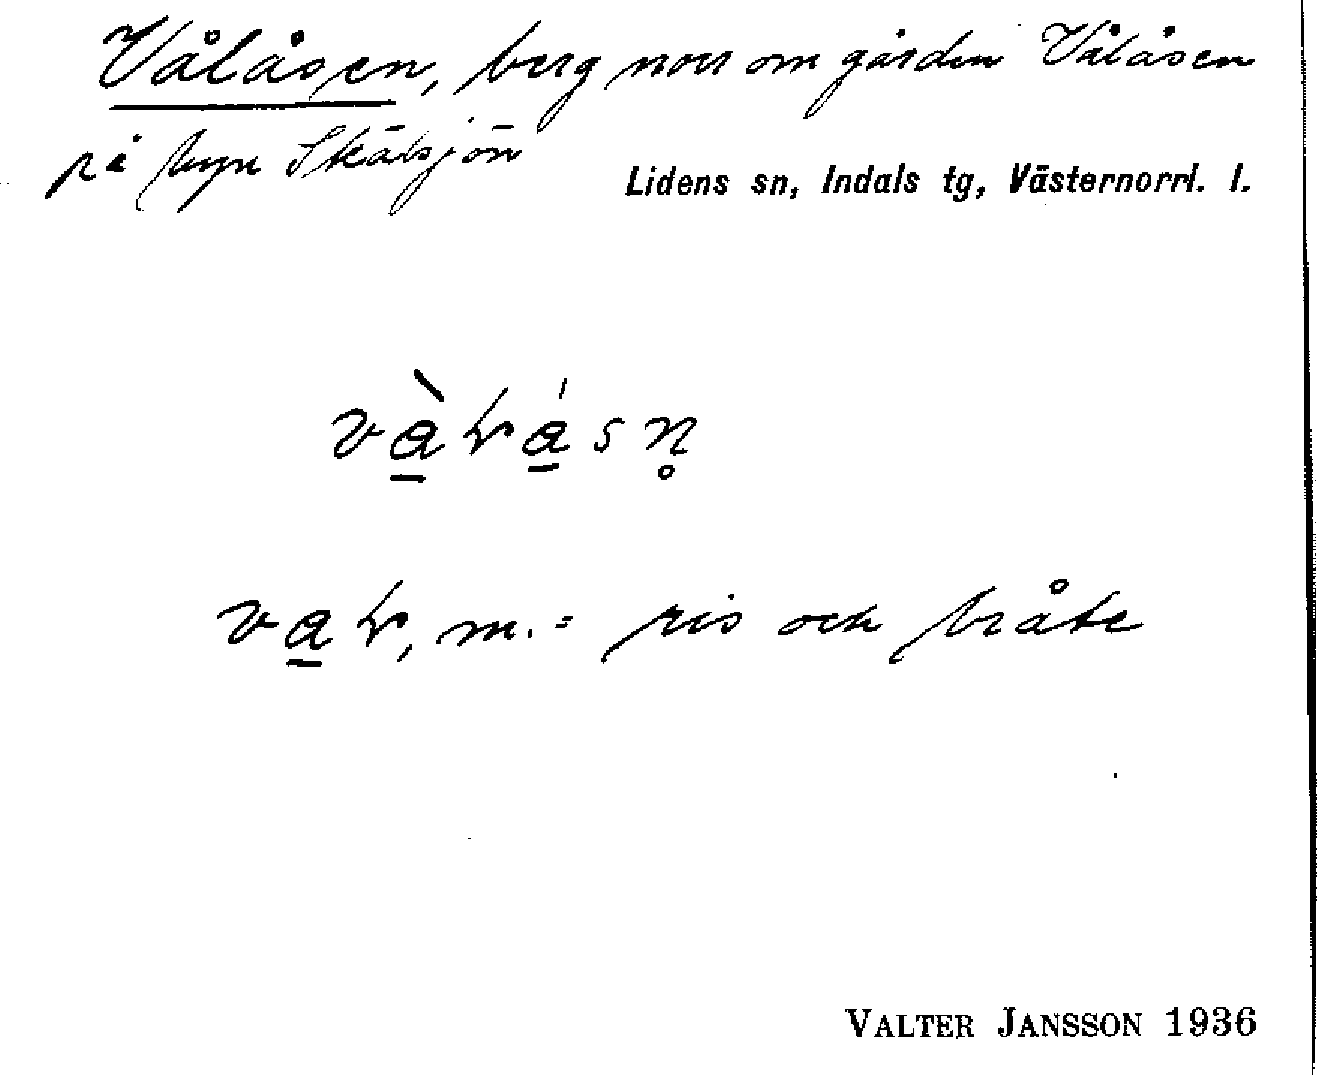 Vålåsen, berg norr om gården Vålåsen
på byn Skälsjön
Lidens sn, Indals tg, Västernorrl. l.
và̱ɫá̱sn̥
va̱ɫ, m. = ris och bråte
VALTER JANSSON 1936